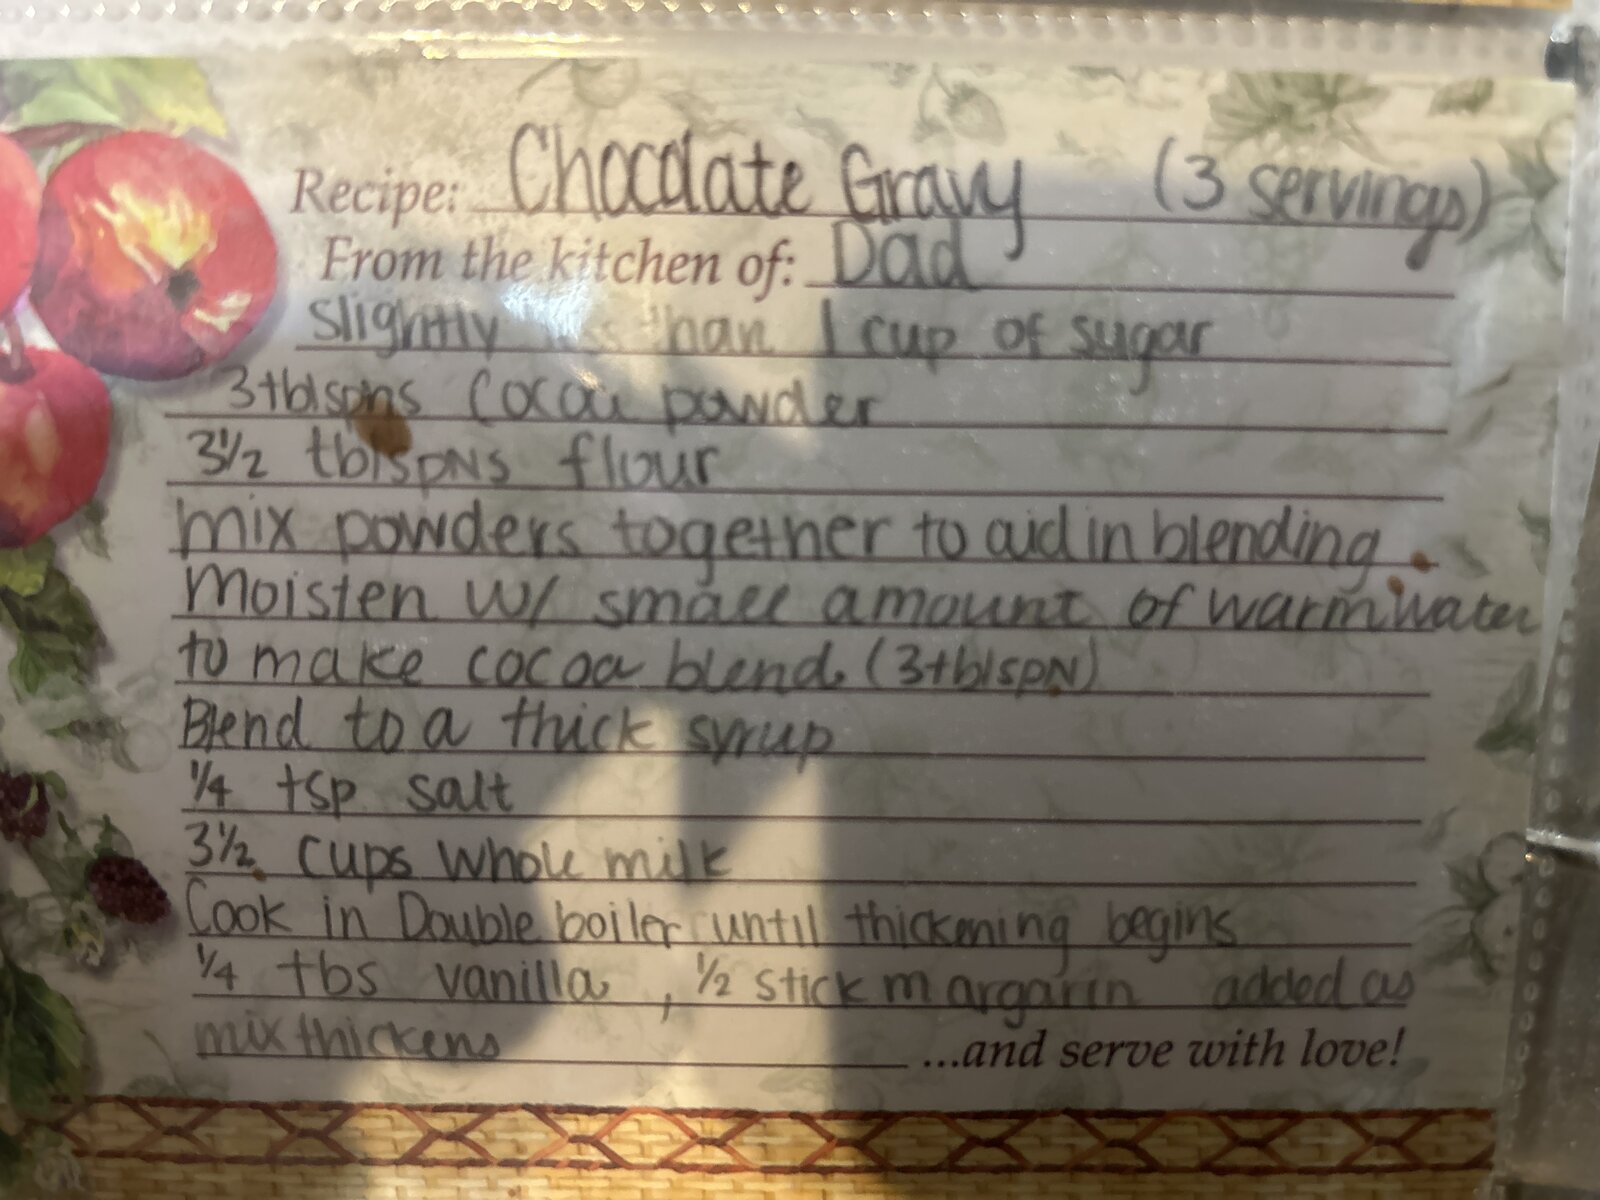 Recipe: Chocolate Gravy (3 servings)
From the kitchen of: Dad
slightly than 1 cup of sugar
3tblspns Cocoa powder
3½ tblspns flour
mix powders together to aid in blending.
Moisten w/ small amount of warm water
to make cocoa blend. (3tblspn)
Blend to a thick syrup
¼ tsp salt
3½ cups whole milk
Cook in Double boiler until thickening begins
¼ tbs vanilla, ½ stick margarin added as
mix thickens ...and serve with love!